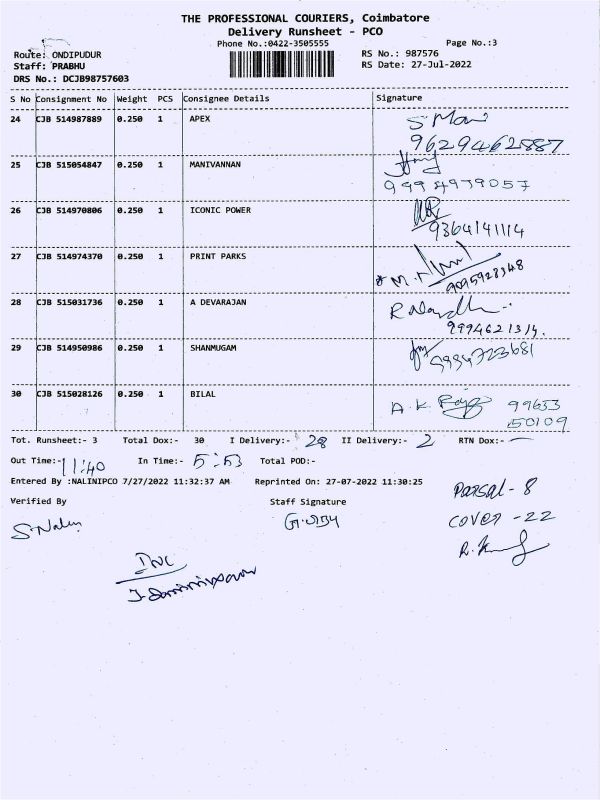 THE PROFESSIONAL COURIERS, Coimbatore
Delivery Runsheet - PCO
Phone No.:0422-3505555 Page No.:3
Route: ONDIPUDUR RS No.: 987576
Staff: PRABHU RS Date: 27-Jul-2022
DRS No.: DCJB98757603
S No Consignment No Weight PCS Consignee Details Signature
24 CJB 514987889 0.250 1 APEX S Mani
9629462887
25 CJB 515054847 0.250 1 MANIVANNAN
9994979057
26 CJB 514970806 0.250 1 ICONIC POWER
9364141114
27 CJB 514974370 0.250 1 PRINT PARKS
9095928348
28 CJB 515031736 0.250 1 A DEVARAJAN
9994621314.
29 CJB 514950986 0.250 1 SHANMUGAM
9994723681
30 CJB 515028126 0.250 1 BILAL A.K. 99653
50109
Tot. Runsheet:- 3 Total Dox:- 30 I Delivery:- 28 II Delivery:- 2 RTN Dox:- —
Out Time:- 11:40 In Time:- 5:53 Total POD:-
Entered By :NALINIPCO 7/27/2022 11:32:37 AM Reprinted On: 27-07-2022 11:30:25
Verified By Staff Signature
Parsal - 8
S. Nalini
cover - 22